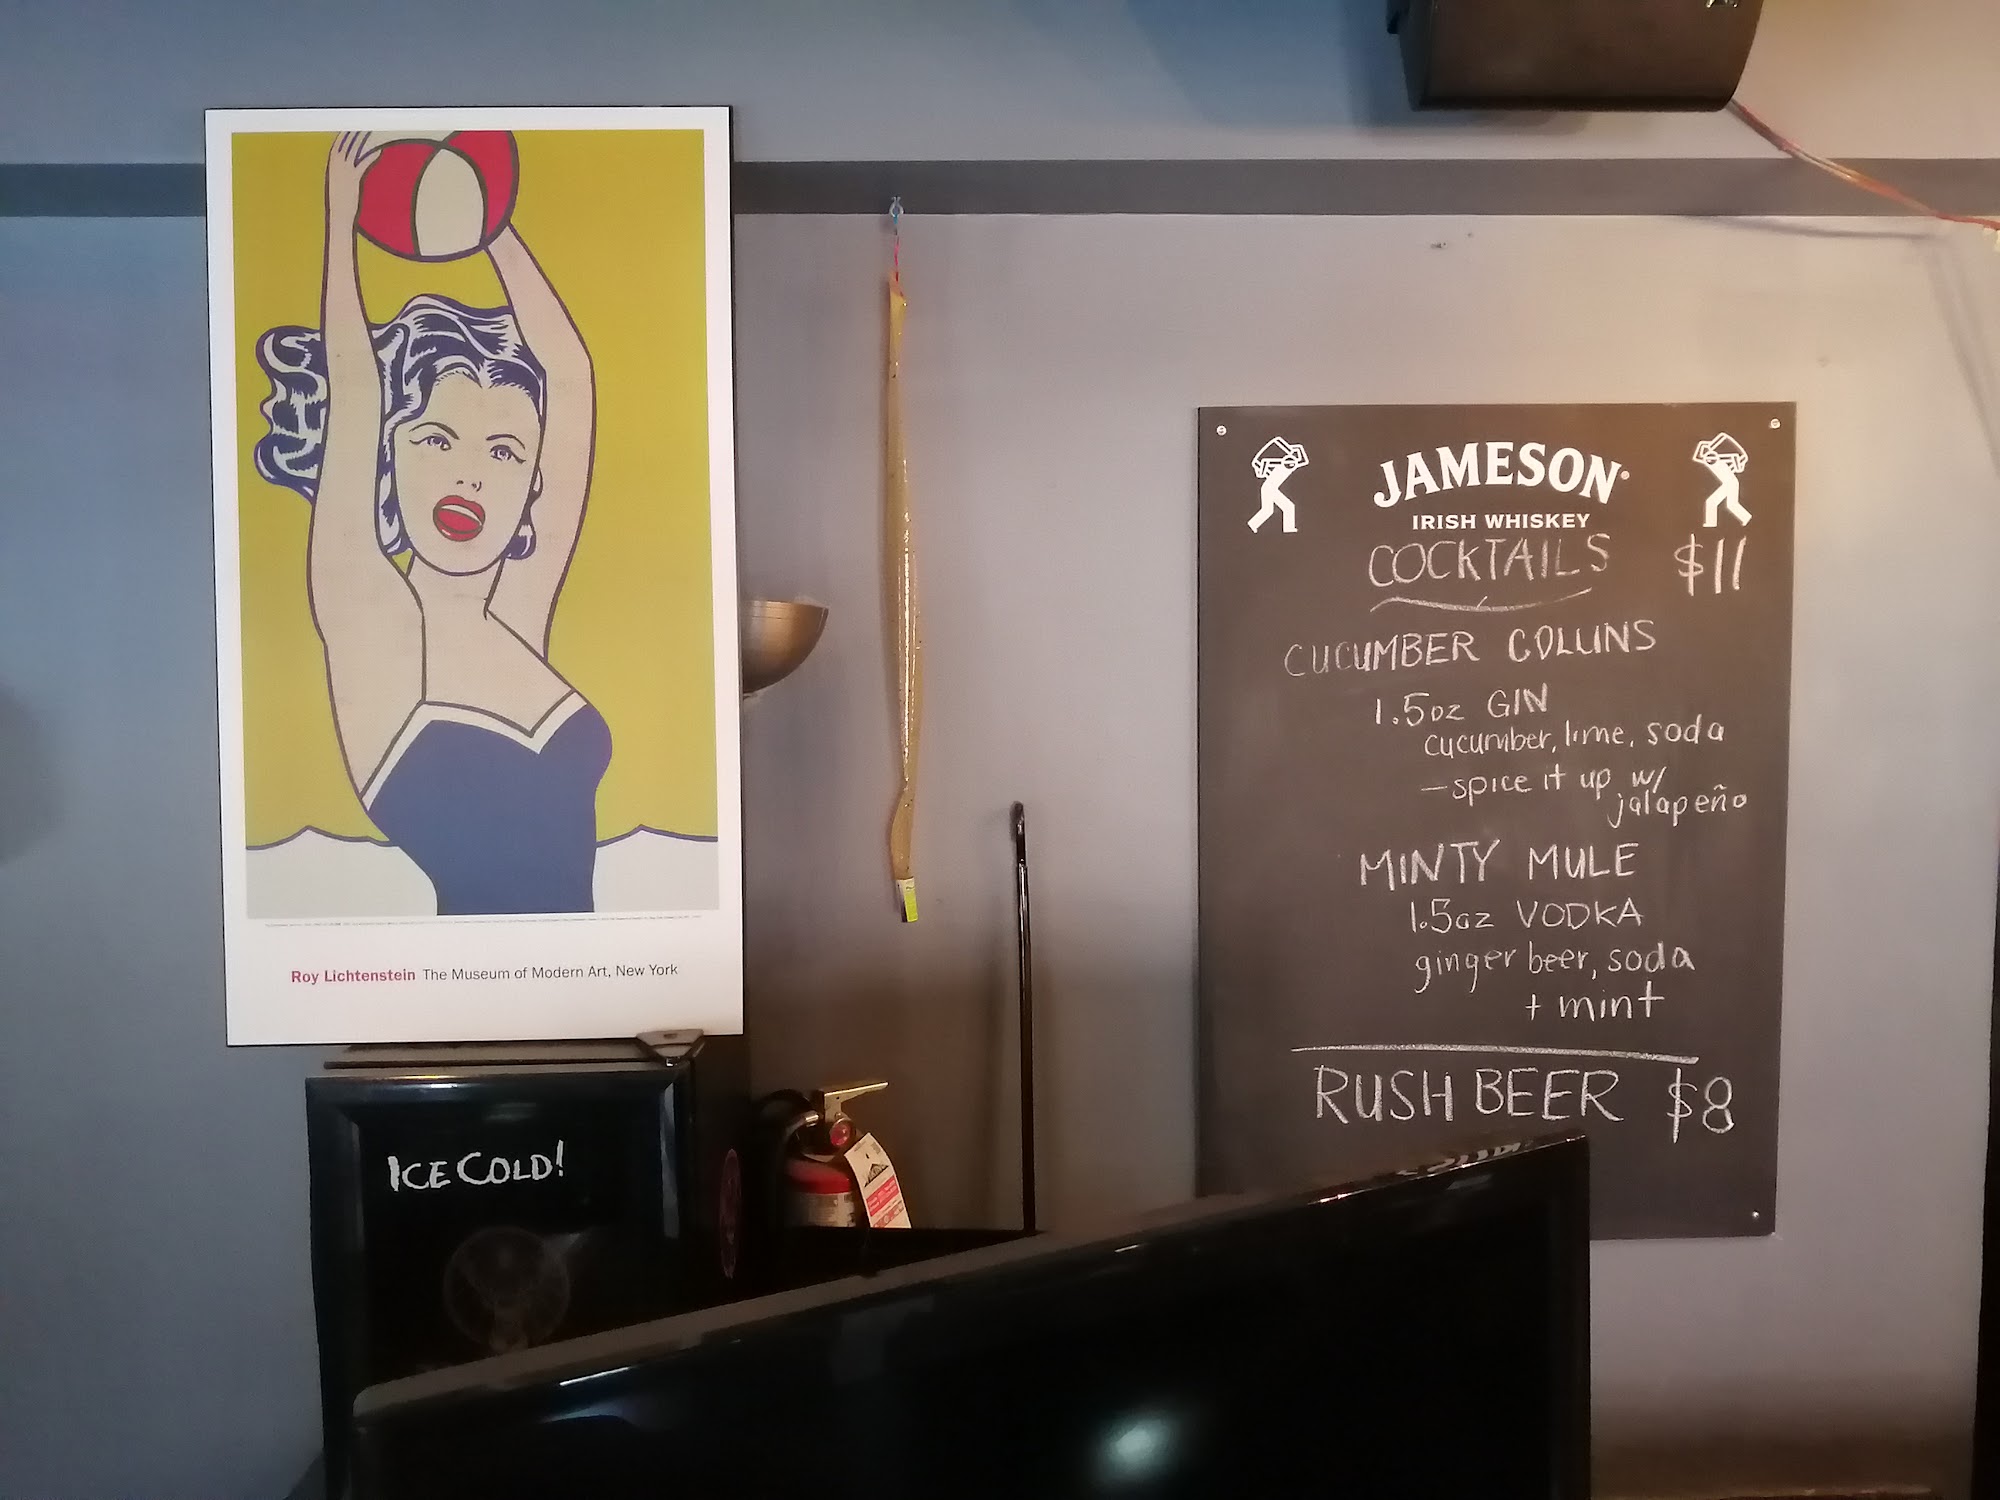 Roy Lichtenstein The Museum of Modern Art, New York
ICE COLD!
JAMESON®
IRISH WHISKEY
COCKTAILS $11
CUCUMBER COLLINS
1.5oz GIN
cucumber, lime, soda
– spice it up w/
jalapeño
MINTY MULE
1.5oz VODKA
ginger beer, soda
+ mint
RUSH BEER $8